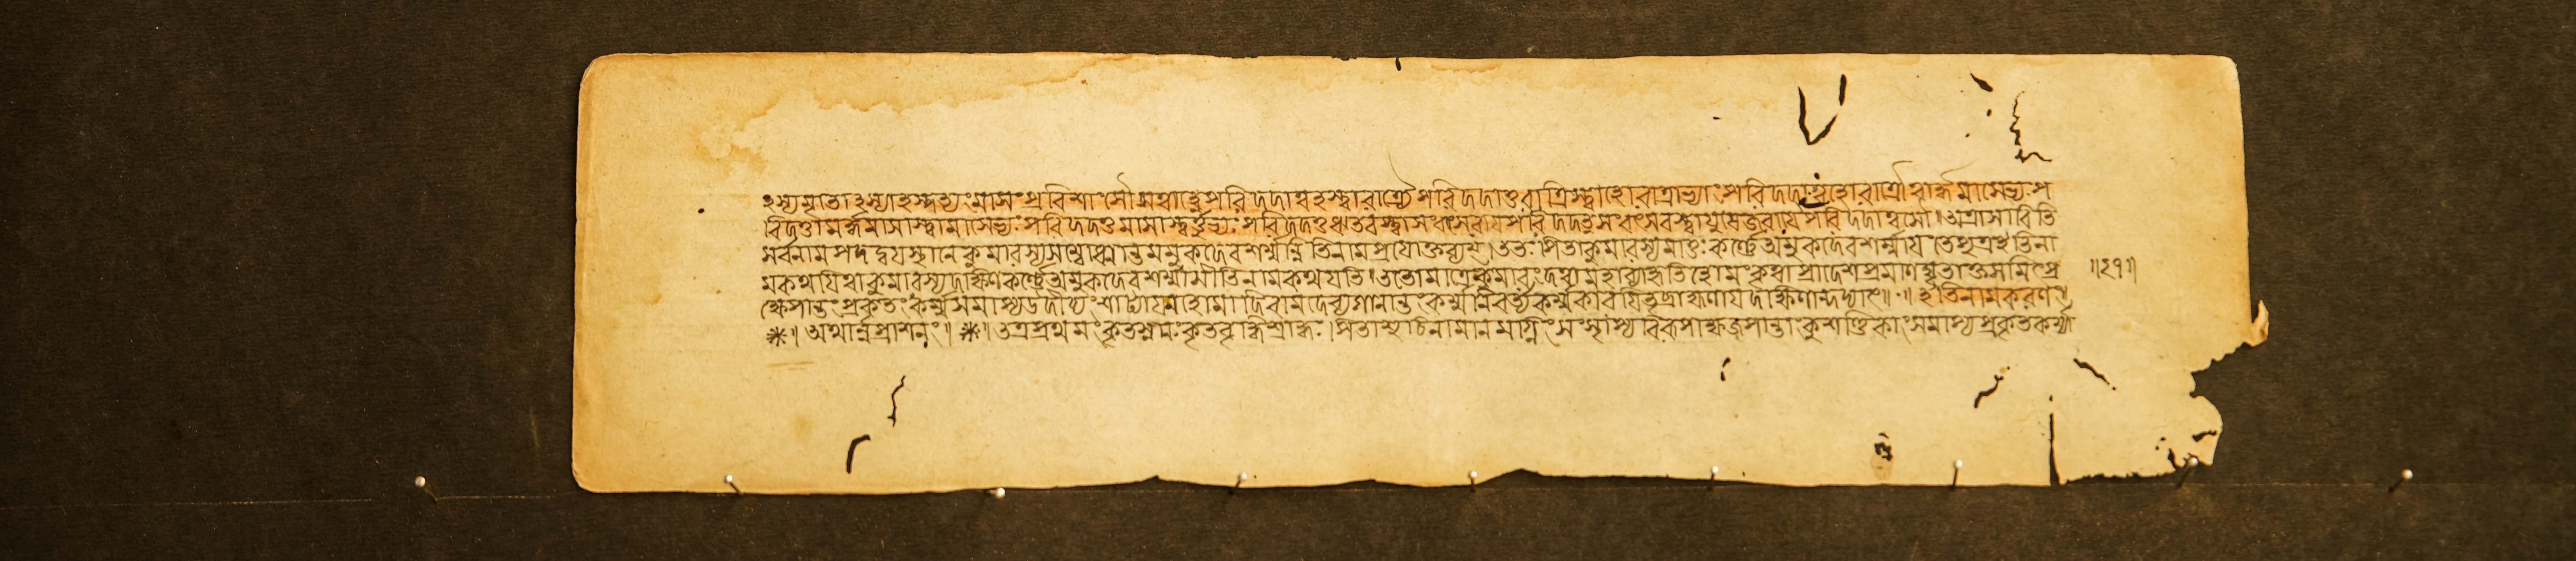 ঽস্যমৃতোঽস্যাহস্পত্যং মাসং প্রবিশাসৌ সত্বাহ্নে পরিদদাত্বহস্ত্বারাত্র্যৈ পরিদদাতু রাত্রিস্ত্বাহোরাত্রাভ্যাং পরিদদাত্বহোরাত্রৌ ত্বার্দ্ধমাসেভ্যঃ প
রিদত্তামর্দ্ধমাসাস্ত্বামাসেভ্যঃ পরিদদতু মাসাস্ত্বর্ত্তুভ্যঃ পরিদদতু ঋতবস্ত্বাসংবৎসরায় পরিদদতু সংবৎসরস্ত্বায়ুষেজরায়ৈ পরিদদাত্বসৌ। অত্রাসাবিতি
সর্বনামপদদ্বয়স্থানে কুমারস্য সম্বোধনান্তমমুকদেবশর্ম্মন্নিতি নাম প্রযোক্তব্যম্। ততঃ পিতা কুমারস্য মাতুঃ কর্ণে অমুকদেবশর্ম্মায়ং তে পুত্র ইতি না
ম কথয়িত্বা কুমারস্য দক্ষিণকর্ণে অমুকদেবশর্ম্মাসীতি নাম কথয়তি। ততো মাত্রে কুমারং দত্বা মহাব্যাহৃতিহোমং কৃত্বা প্রাদেশপ্রমাণঘৃতাক্তসমিৎপ্র ॥২৭॥
ক্ষেপান্তং প্রকৃতং কর্ম্ম সমাপ্য উদীচ্যং শাট্যায়নহোমাদিবামদেব্যগানান্তং কর্ম্ম নির্বর্ত্য কর্ম্মকারয়িতৃব্রাহ্মণায় দক্ষিণান্দদ্যাৎ॥ ॥ ইতি নামকরণং॥
॥ অথান্নপ্রাশনং॥ ॥ তত্র প্রথমং কৃতস্নানঃ কৃতবৃদ্ধিশ্রাদ্ধঃ পিতা শুচিনামানমগ্নিং সংস্থাপ্য বিরূপাক্ষজপান্তাং কুশণ্ডিকাং সমাপ্য প্রকৃতকর্ম্মা